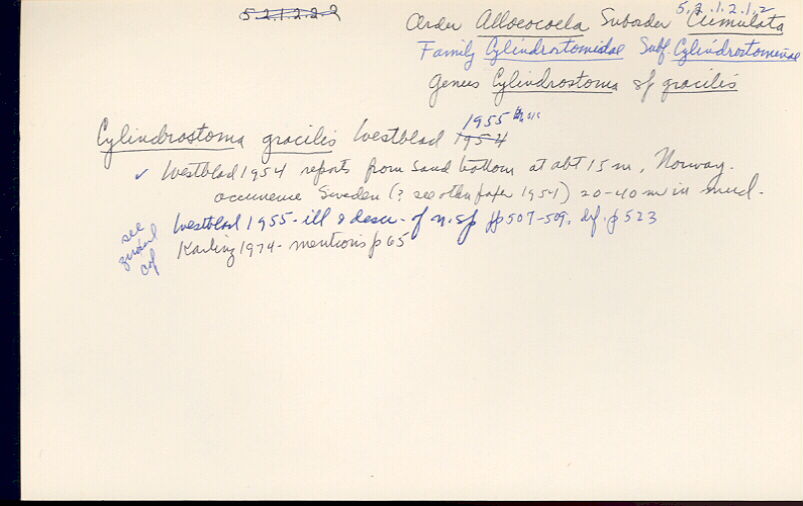 5.2.1.2.2.2 5.2.1.2.1.2
Order Alloeocoela Suborder Cumulata
Family Cylindrostomidae Subf. Cylindrostominae
Genus Cylindrostoma sp gracilis
1955
Cylindrostoma gracilis Westblad 1954
✓ Westblad 1954 reports from sand bottom at abt 15 m, Norway.
occurrence Sweden (? see other paper 1954) 20-40 m in mud.
Westblad 1955 - ill & descr - of n. sp pp 507-509, def. p 523
Karling 1974 - mentions p 65
see
col